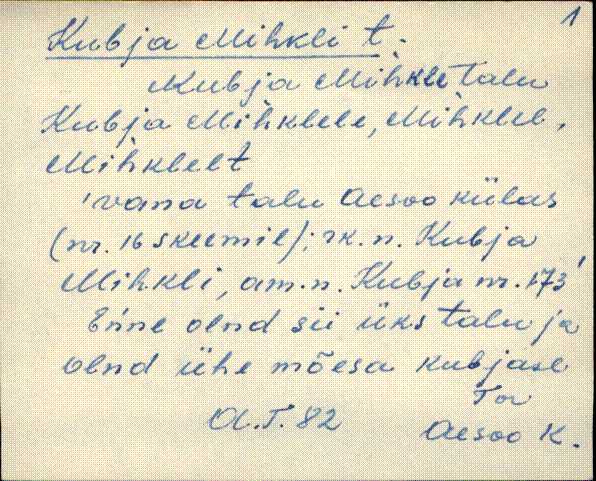 1
Kubja Mihkli t.
Kubja Mihkle Talu
Kubja Mihklele, Mihklel,
Mihklelt
'vana talu Aesoo külas
(nr. 16 skeemil); rk. n. Kubja
Mihkli, am. n. Kubja nr. 173'
Enne olnd sii üks talu ja
olnd ühe mõesa kubjase
Tor
A.T. 82
Aesoo K.